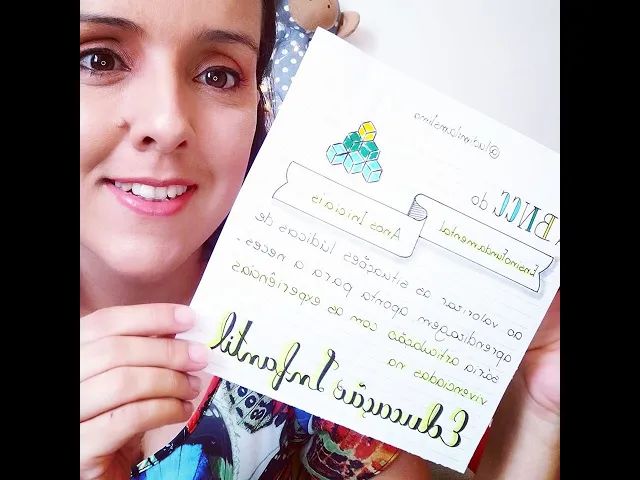 A BNCC do
Ensino Fundamental
Anos Iniciais
ao valorizar as situações lúdicas de
aprendizagem aponta para a neces-
sária articulação com as experiências
vivenciadas na
Educação Infantil